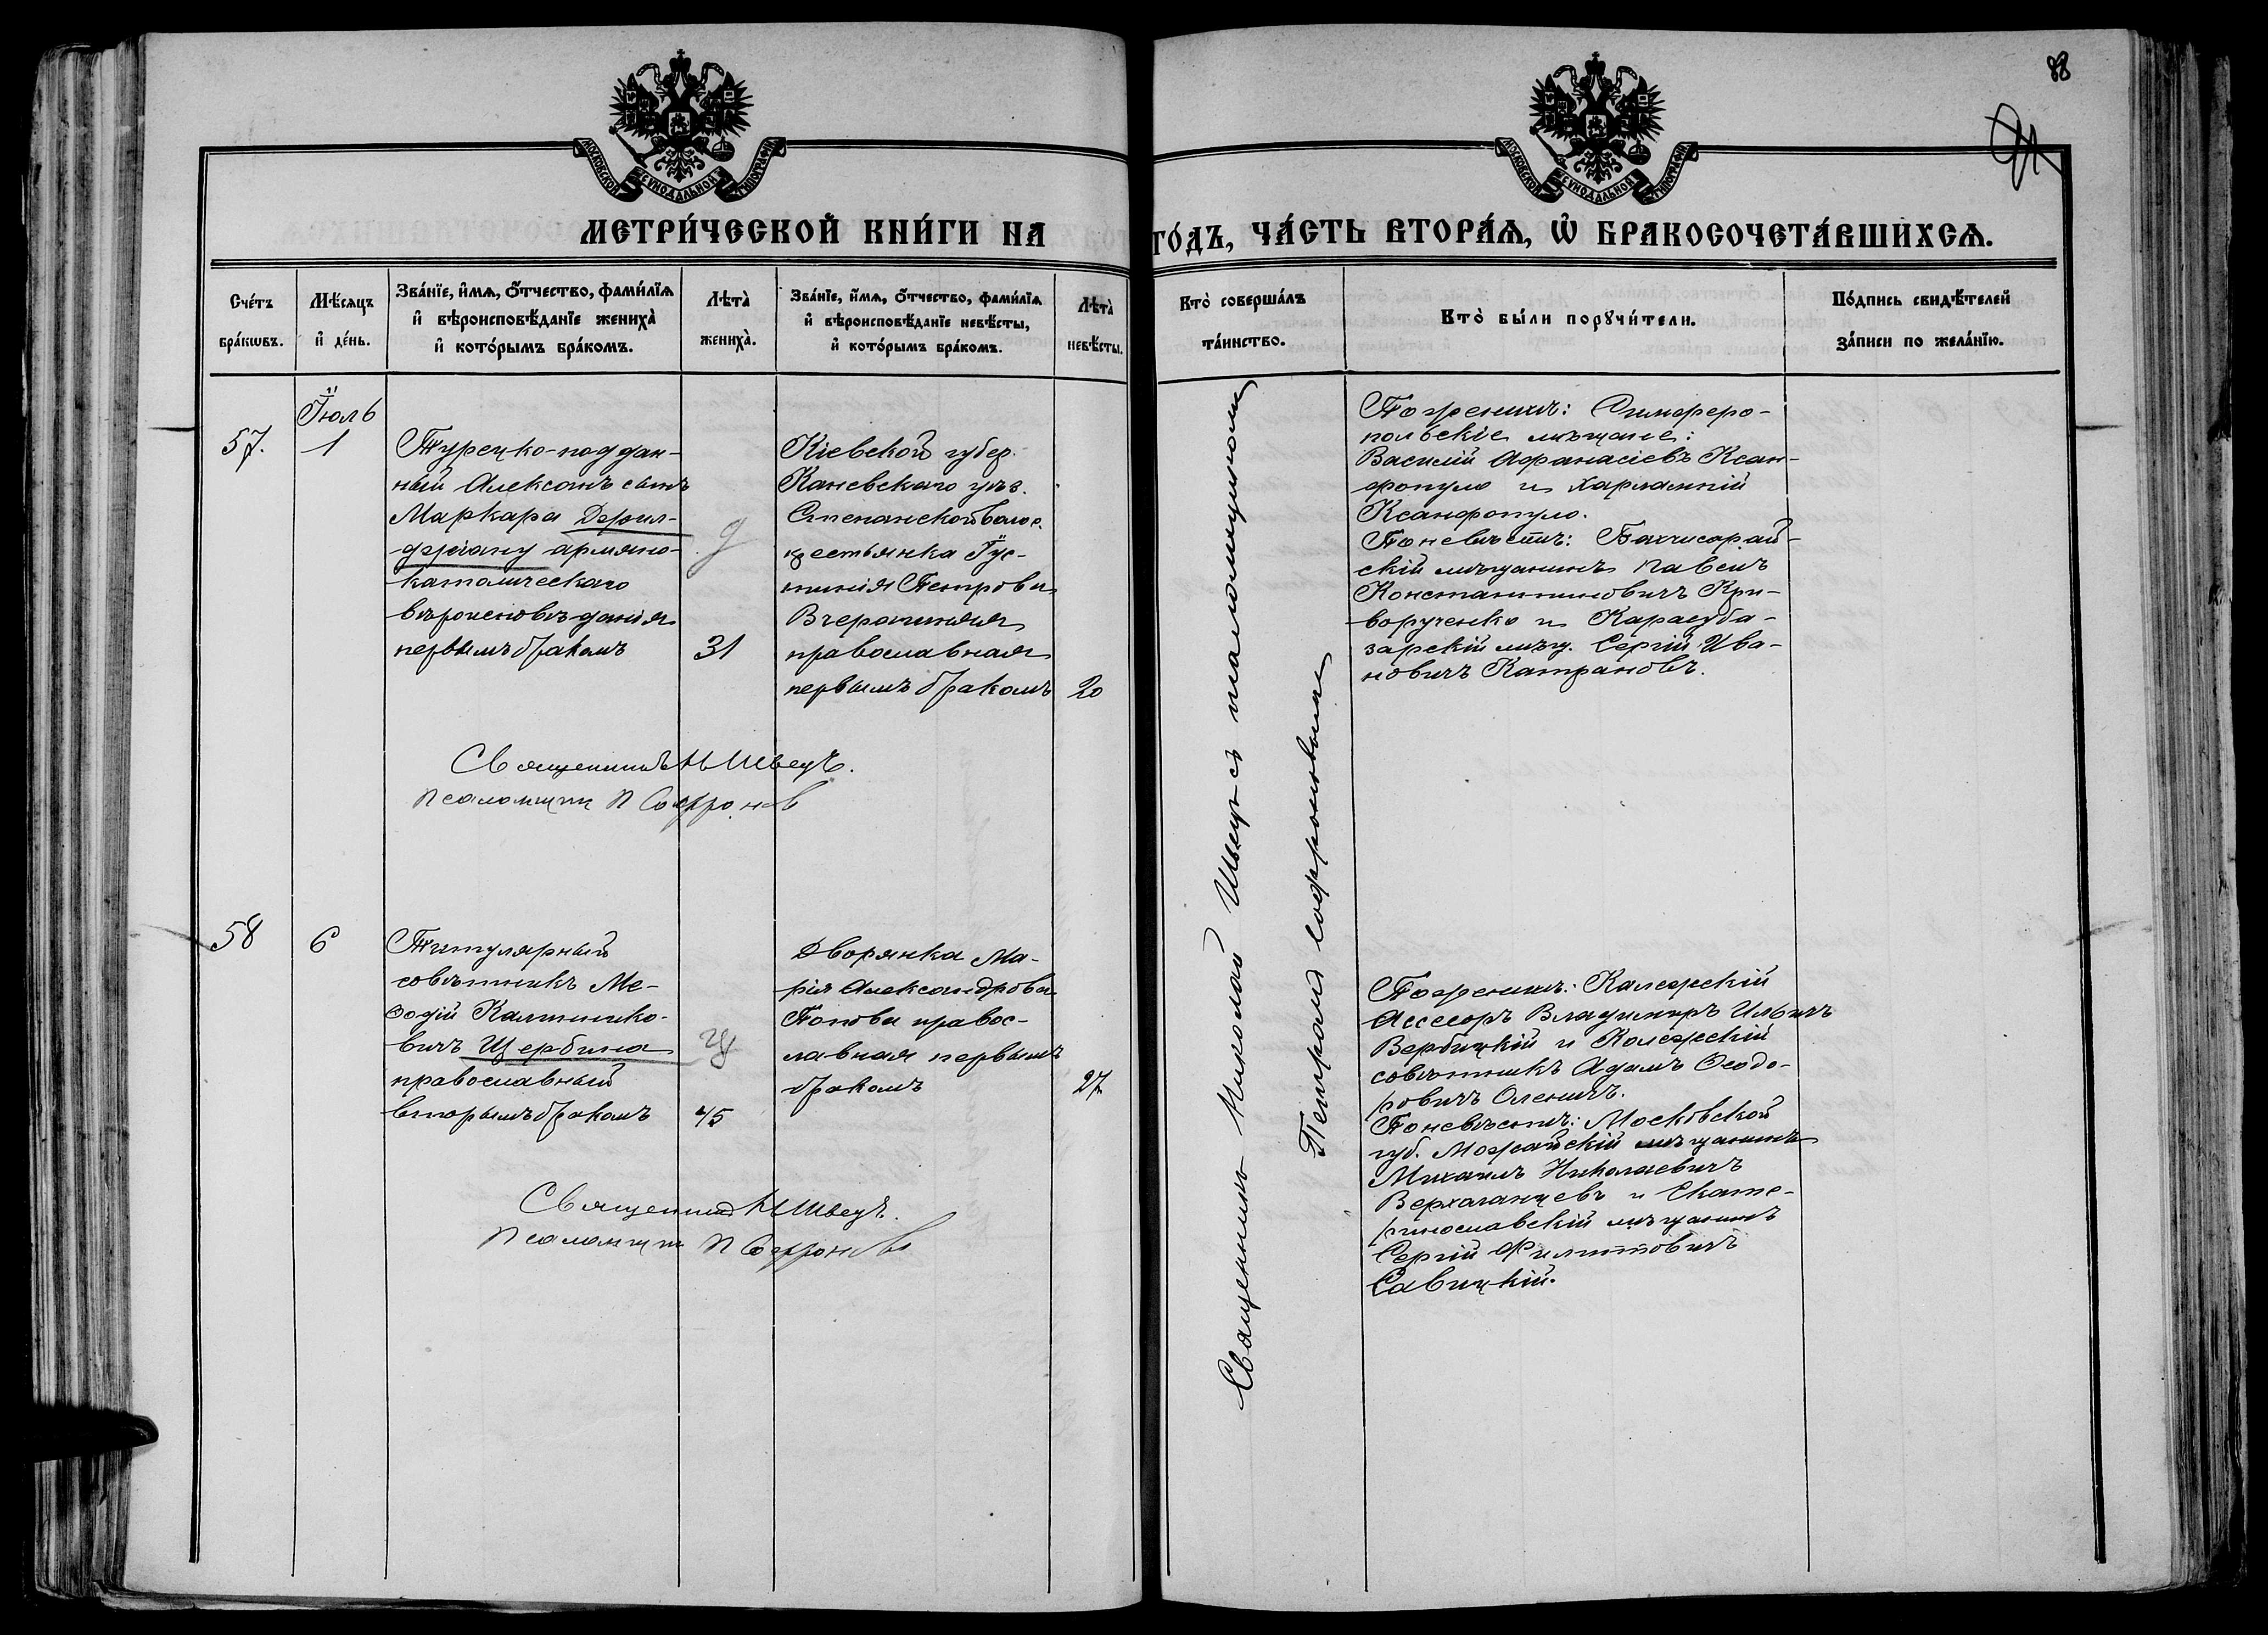 88
МОСКОВСКОЙ СѴНОДАЛЬНОЙ ТИПОГРАФІИ
МОСКОВСКОЙ СѴНОДАЛЬНОЙ ТИПОГРАФІИ
МЕТРИ́ЧЕСКОЙ КНИ́ГИ НА ГО́ДЪ, ЧА́СТЬ ВТОРА́Ѧ, Ѡ҆ БРАКОСОЧЕТА́ВШИХСѦ.
Сче́тъ
бра́кѡвъ.
Мѣ́сѧцъ
и҆ де́нь.
Зва́нїе, и҆́мѧ, ѻ҆́тчество, фами́лїѧ
и҆ вѣроисповѣ́данїе жениха̀
и҆ кото́рымъ бра́комъ.
Лѣта̀
жениха̀.
Зва́нїе, и҆́мѧ, ѻ҆́тчество, фами́лїѧ
и҆ вѣроисповѣ́данїе невѣ́сты,
и҆ кото́рымъ бра́комъ.
Лѣта̀
невѣ́сты.
Кто̀ соверша́лъ
та́инство.
Кто̀ бы́ли порꙋчи́тели.
По́дпись свидѣ́телей
за́писи по жела́нїю.
Іюль
57.
1
Турецко-поддан-
ный Алексанъ сынъ
Маркара Дерил-
джіану армяно-
католическаго
вѣроисповѣданія
первымъ бракомъ
31
Кіевской губер.
Каневскаго уѣз.
Степанской волос.
крестьянка Іус-
тинія Петрова
Вчерашняя
православная
первымъ бракомъ
20
Священникъ Н Швецъ.
Псаломщик П Софронов
Священникъ Николай Швецъ съ псаломщикомъ
Петромъ Софроновымъ
По женихѣ: Симферо-
польскіе мѣщане:
Василій Афанасіевъ Ксан-
фопуло и Харлампій
Ксанфопуло.
По невѣстѣ: Бахчисарай-
скій мѣщанинъ Павелъ
Константиновичъ Кри-
ворученко и Карасуба-
зарскій мѣщ. Сергій Ива-
новичъ Катрановъ.
58
6
Титулярный
совѣтникъ Ме-
ѳодій Каллинико-
вичъ Щербина
православный
вторымъ бракомъ
45
Дворянка Ма-
рія Александрова
Попова правос-
лавная первымъ
бракомъ
27
Священник Н Швецъ.
Псаломщик П Софроновъ
По женихѣ: Коллежскій
Ассесоръ Владиміръ Ильичъ
Вербицкій и Колежскій
совѣтникъ Адамъ Ѳеодо-
ровичъ Олешичъ.
По невѣстѣ: Московской
губ. Можайскій мѣщанинъ
Михаилъ Николаевичъ
Верхаланцевъ и Екате-
ринославскій мѣщанинъ
Сергій Филипповичъ
Савицкій.